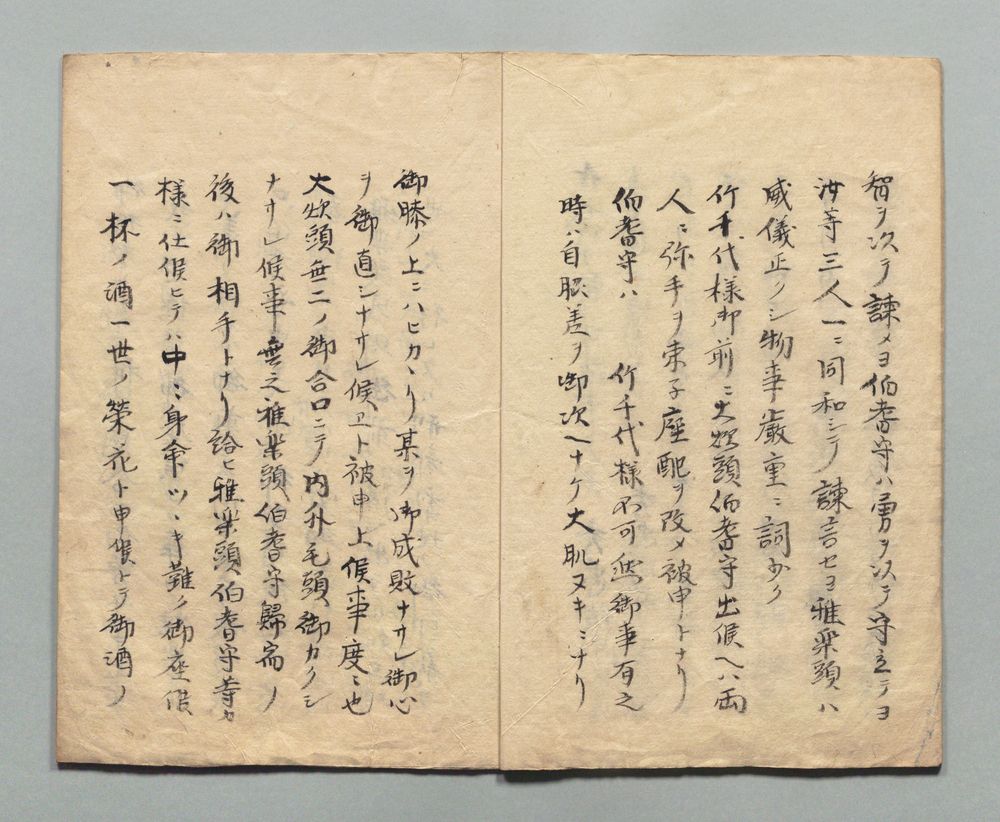 智ヲ次テ諫メヨ伯耆守ハ勇ヲ以テ守立テヨ
汝等三人一ニ同和シテ諫言セヨ雅楽頭ハ
威儀正クシ物事厳重ニ詞少ク
竹千代様御前ニ大炊頭伯耆守出候ヘハ両
人ニ弥手ヲ束子座配ヲ改メ被申トナリ
伯耆守ハ 竹千代様不可然御事有之
時ハ自脇差ヲ御次ヘナケ大肌ヌキニナリ
御膝ノ上ニハヒカヽリ某ヲ御成敗ナサレ御心
ヲ御直シナサレ候ヱト被申上候事度々也
大炊頭無二ノ御合口ニテ内外毛頭御カクシ
ナサレ候事無之雅楽頭伯耆守歸宿ノ
後ハ御相手トナリ給ヒ雅楽頭伯耆守等カ
様ニ仕候ヒテハ中々身命ツヽキ難ク御座候
一杯ノ酒一世ノ榮花ト申候トテ御酒ノ